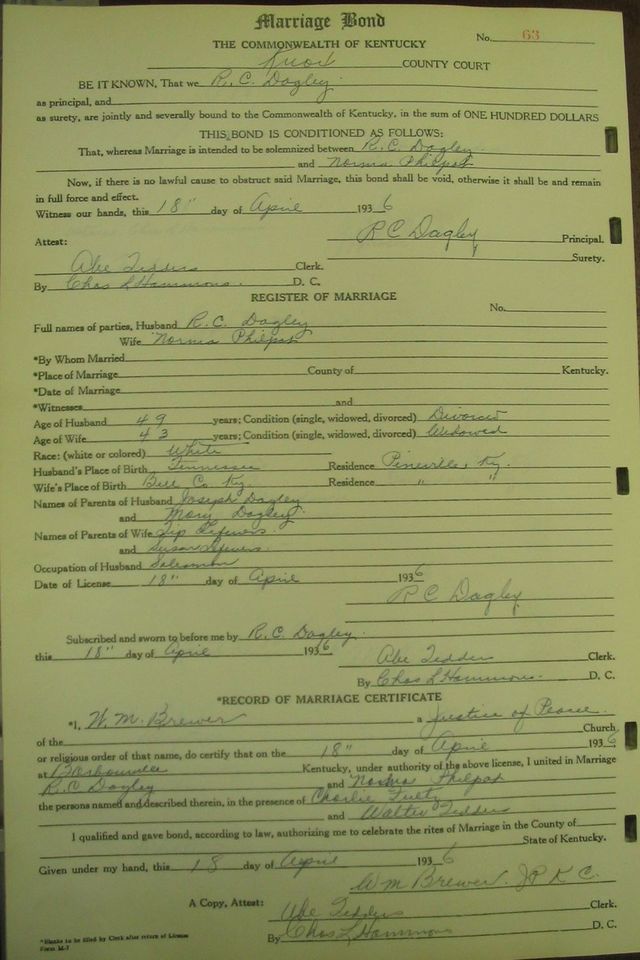 Marriage Bond
No. 63
THE COMMONWEALTH OF KENTUCKY
Knox COUNTY COURT
BE IT KNOWN, That we R. C. Dagley
as principal, and
as surety, are jointly and severally bound to the Commonwealth of Kentucky, in the sum of ONE HUNDRED DOLLARS
THIS BOND IS CONDITIONED AS FOLLOWS:
That, whereas Marriage is intended to be solemnized between R. C. Dagley
and Norma Philpot
Now, if there is no lawful cause to obstruct said Marriage, this bond shall be void, otherwise it shall be and remain
in full force and effect.
Witness our hands, this 18" day of April 1936
R C Dagley Principal.
Attest:
Surety.
Abe Tedders Clerk.
By Chas L Hammons. D. C.
REGISTER OF MARRIAGE
No.
Full names of parties, Husband R. C. Dagley
Wife Norma Philpot
*By Whom Married
*Place of Marriage County of Kentucky.
*Date of Marriage
*Witnesses and
Age of Husband 49 years; Condition (single, widowed, divorced) Divorced
Age of Wife 43 years; Condition (single, widowed, divorced) Widowed
Race: (white or colored) White
Husband's Place of Birth Tennessee Residence Pineville, Ky.
Wife's Place of Birth Bell Co. Ky. Residence " "
Names of Parents of Husband Joseph Dagley
and Mary Dagley
Names of Parents of Wife
and Susan
Occupation of Husband Salesman
Date of License 18" day of April 1936
R C Dagley
Subscribed and sworn to before me by R. C. Dagley.
this 18" day of April 1936
Abe Tedders Clerk.
By Chas L Hammons. D. C.
*RECORD OF MARRIAGE CERTIFICATE
*I, W. M. Brewer a Justice of Peace.
of the Church
or religious order of that name, do certify that on the 18" day of April 1936
at Barbourville Kentucky, under authority of the above license, I united in Marriage
R. C. Dagley and Norma Philpot
the persons named and described therein, in the presence of Charlie
and Walter Tedders
I qualified and gave bond, according to law, authorizing me to celebrate the rites of Marriage in the County of
State of Kentucky.
Given under my hand, this 18 day of April 1936
W M Brewer. J P K C.
A Copy, Attest: Abe Tedders Clerk.
By Chas L Hammons D. C.
*Blanks to be filled by Clerk after return of License
Form M-7